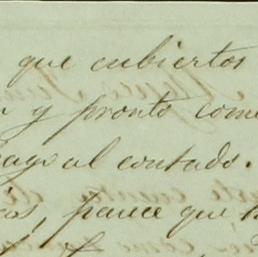 que cubiertos
y pronto come
pago al contado.
parece que h